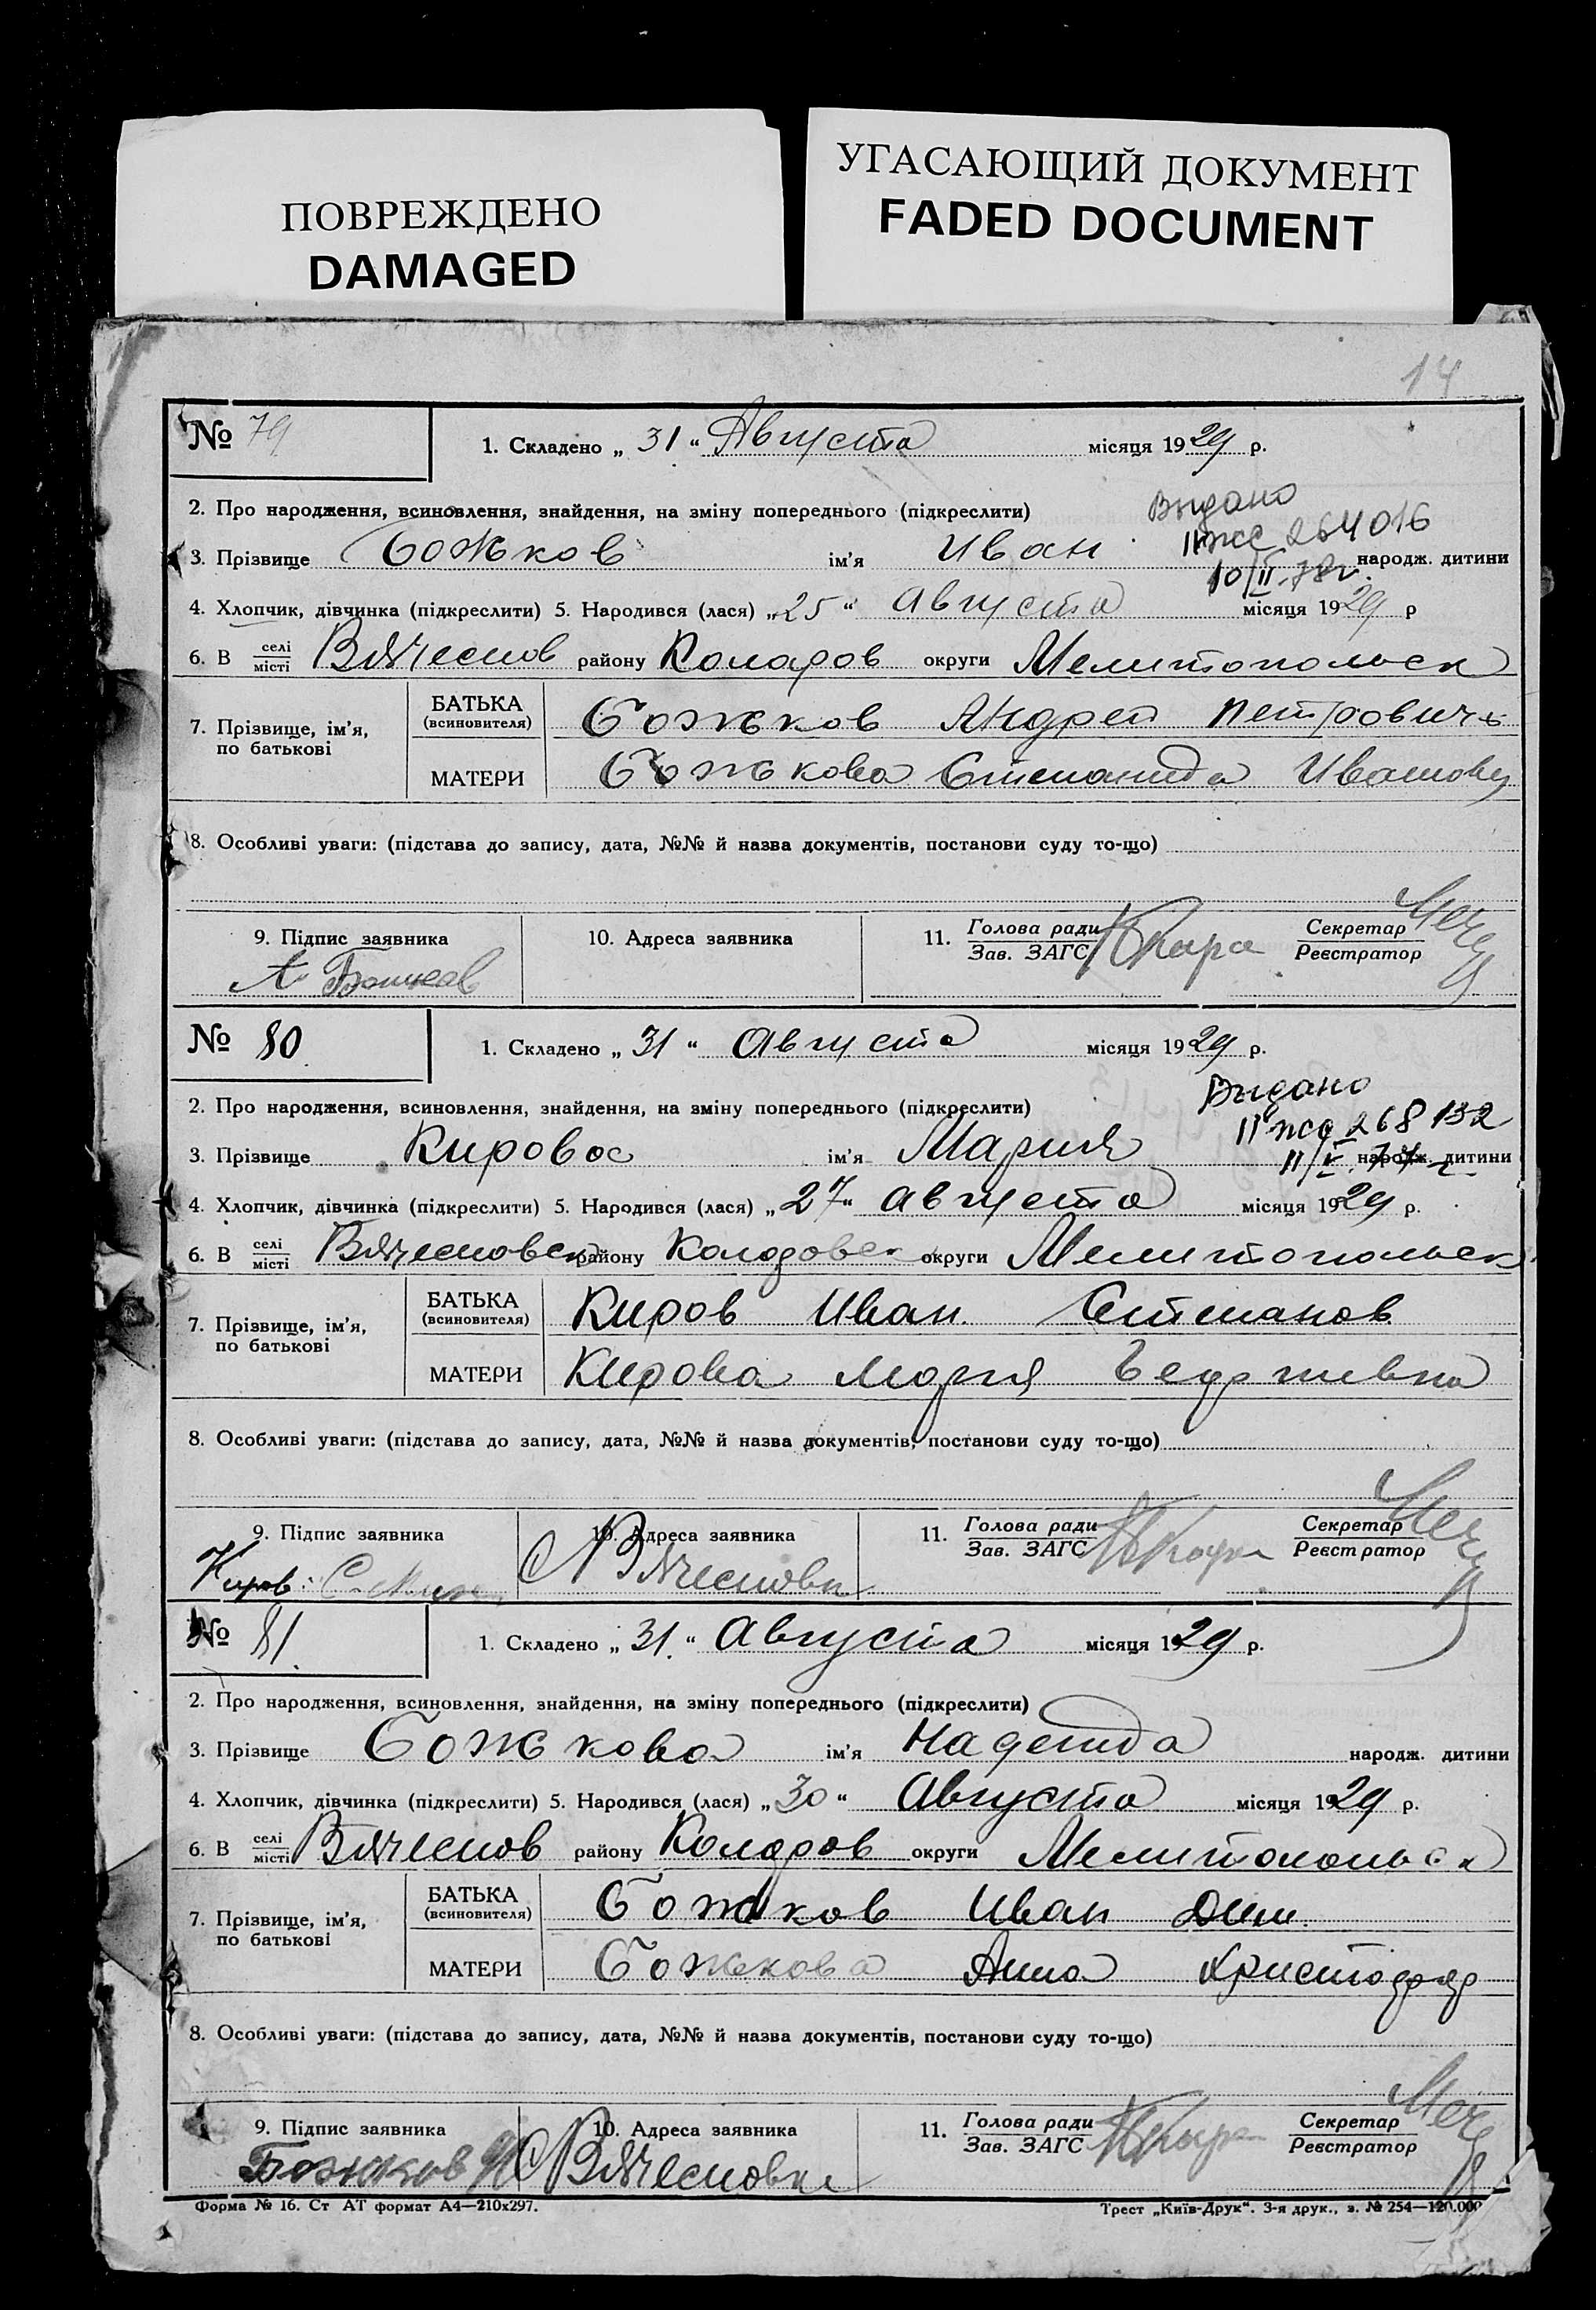 ПОВРЕЖДЕНО
DAMAGED
УГАСАЮЩИЙ ДОКУМЕНТ
FADED DOCUMENT
14
№ 79
1. Складено „ 31 “ Августа місяця 1929 р.
2. Про народження, всиновлення, знайдення, на зміну попереднього (підкреслити)
Видано
II жс 264016
10/II 78г.
3. Прізвище Божков ім’я Иван народж. дитини
4. Хлопчик, дівчинка (підкреслити) 5. Народився (лася) „25“ Августа місяця 1929 р
6. В селі/місті Вячеслов району Коларов округи Мелитопольск
7. Прізвище, ім’я, по батькові
БАТЬКА (всиновителя) Божков Андрей Петрович
МАТЕРИ Божкова Степанида Иванову
8. Особливі уваги: (підстава до запису, дата, №№ й назва документів, постанови суду то-що)
9. Підпис заявника
10. Адреса заявника
11. Голова ради/Зав. ЗАГС
Секретар/Реєстратор
№ 80
1. Складено „ 31 “ Августа місяця 1929 р.
2. Про народження, всиновлення, знайдення, на зміну попереднього (підкреслити)
Видано
II жс 268132
3. Прізвище Кировос ім’я Мария народж. дитини
4. Хлопчик, дівчинка (підкреслити) 5. Народився (лася) „27“ Августа місяця 1929 р.
6. В селі/місті Вячесловск району Коларовск округи Мелитопольск
7. Прізвище, ім’я, по батькові
БАТЬКА (всиновителя) Киров Иван Степанов
МАТЕРИ Кирова Мария
8. Особливі уваги: (підстава до запису, дата, №№ й назва документів, постанови суду то-що)
9. Підпис заявника
Киров
10. Адреса заявника
Вячесловк
11. Голова ради/Зав. ЗАГС
Секретар/Реєстратор
№ 81.
1. Складено „ 31. “ Августа місяця 1929 р.
2. Про народження, всиновлення, знайдення, на зміну попереднього (підкреслити)
3. Прізвище Божкова ім’я Надежда народж. дитини
4. Хлопчик, дівчинка (підкреслити) 5. Народився (лася) „30“ Августа місяця 1929 р.
6. В селі/місті Вячеслов району Коларов округи Мелитопольск
7. Прізвище, ім’я, по батькові
БАТЬКА (всиновителя) Божков Иван Дим.
МАТЕРИ Божкова Анна
8. Особливі уваги: (підстава до запису, дата, №№ й назва документів, постанови суду то-що)
9. Підпис заявника
Божков
10. Адреса заявника
Вячесловк
11. Голова ради/Зав. ЗАГС
Секретар/Реєстратор
Форма № 16. Ст АТ формат А4—210х297.
Трест „Київ-Друк“. 3-я друк., з. № 254—120.000